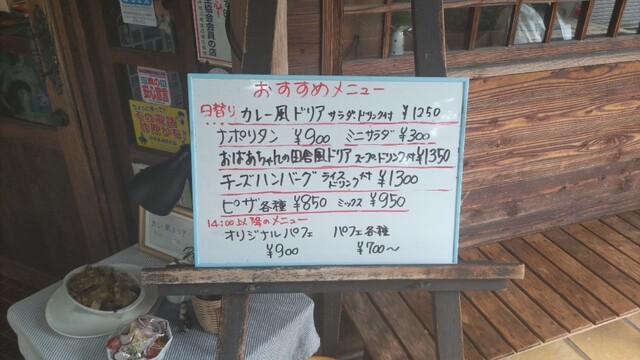 おすすめメニュー
日替り カレー風ドリア サラダ・ドリンク付 ¥1250
ナポリタン ¥900 ミニサラダ ¥300
おばあちゃんの田舎風ドリア スープ・ドリンク付 ¥1350
チーズハンバーグ ライス ドリンク 付 ¥1300
ピザ各種 ¥850 ミックス ¥950
14:00以降のメニュー
オリジナルパフェ パフェ各種
¥900 ¥700〜